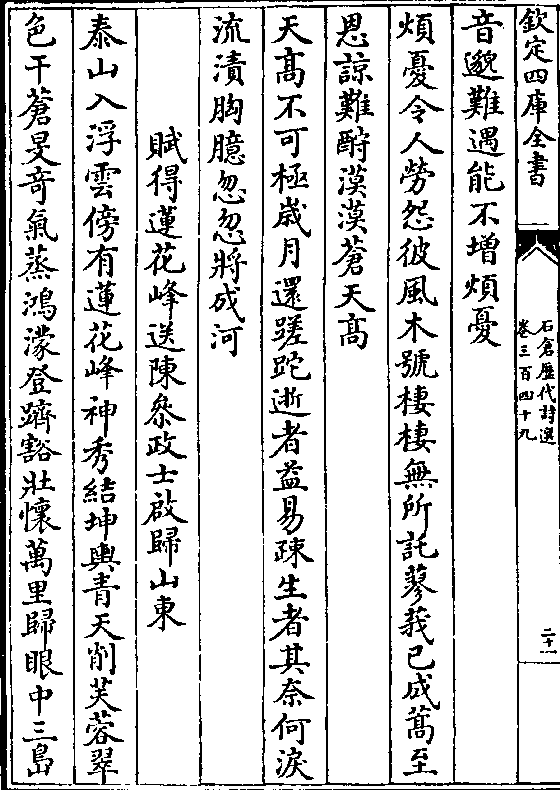 欽定四庫全書
石倉歴代詩選
卷三百四十九
二十一
音邈難遇能不增煩憂
煩憂令人勞怨彼風木號棲棲無所託蓼莪已成蒿至
恩諒難酧漠漠蒼天高
天高不可極歲月還蹉跎逝者益易疎生者其奈何淚
流漬胸臆忽忽將成河
賦得蓮花峰送陳叅政士啟歸山東
泰山入浮雲傍有蓮花峰神秀結坤輿青天削芙蓉翠
色干蒼旻奇氣蒸鴻濛登躋豁壯懷萬里歸眼中三島